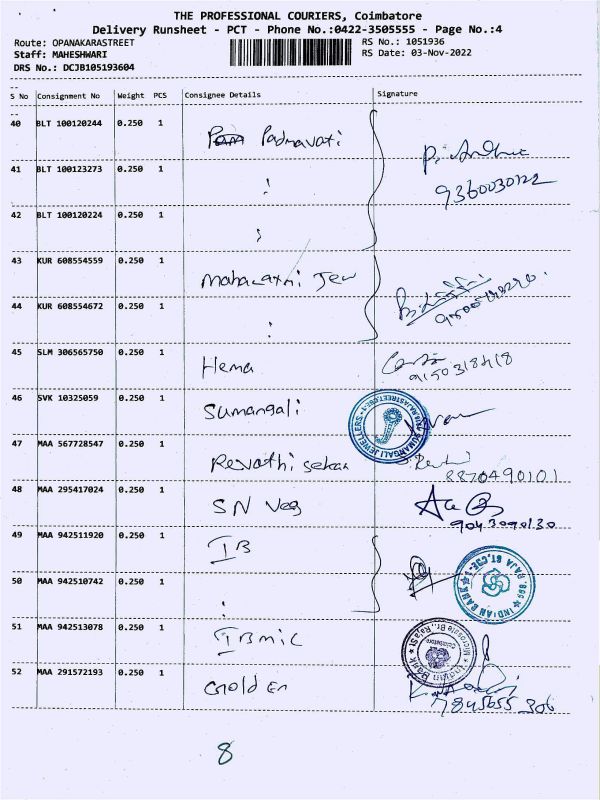 THE PROFESSIONAL COURIERS, Coimbatore
Delivery Runsheet - PCT - Phone No.:0422-3505555 - Page No.:4
Route: OPANAKARASTREET RS No.: 1051936
Staff: MAHESHWARI RS Date: 03-Nov-2022
DRS No.: DCJB105193604
S No Consignment No Weight PCS Consignee Details Signature
40 BLT 100120244 0.250 1 Padmavati
41 BLT 100123273 0.250 1 9360030122
42 BLT 100120224 0.250 1
43 KUR 608554559 0.250 1 Mahalaxmi Jew
44 KUR 608554672 0.250 1
45 SLM 306565750 0.250 1 Hema 9150318418
46 SVK 10325059 0.250 1 Sumangali SUMANGALI JEWELLERS
47 MAA 567728547 0.250 1 Revathi sekar 8870490101
48 MAA 295417024 0.250 1 SN Veg 9043090130
49 MAA 942511920 0.250 1 IB
50 MAA 942510742 0.250 1 INDIAN BANK
51 MAA 942513078 0.250 1 IBMIC Indian Bank
52 MAA 291572193 0.250 1 Golden 7845655 306
8